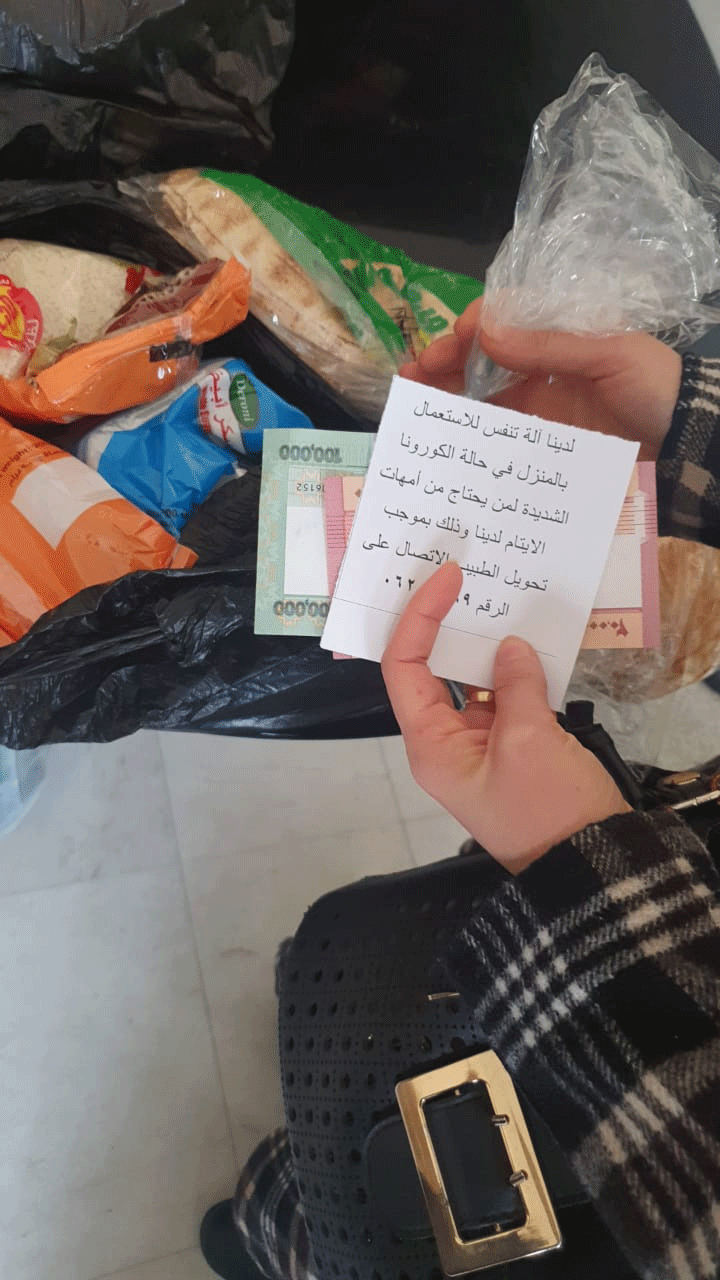 لدينا آلة تنفس للاستعمال
بالمنزل في حالة الكورونا
الشديدة لمن يحتاج من أمهات
الايتام لدينا وذلك بموجب
تحويل الطبيب الاتصال على
الرقم
100,000
100,000
Deroni